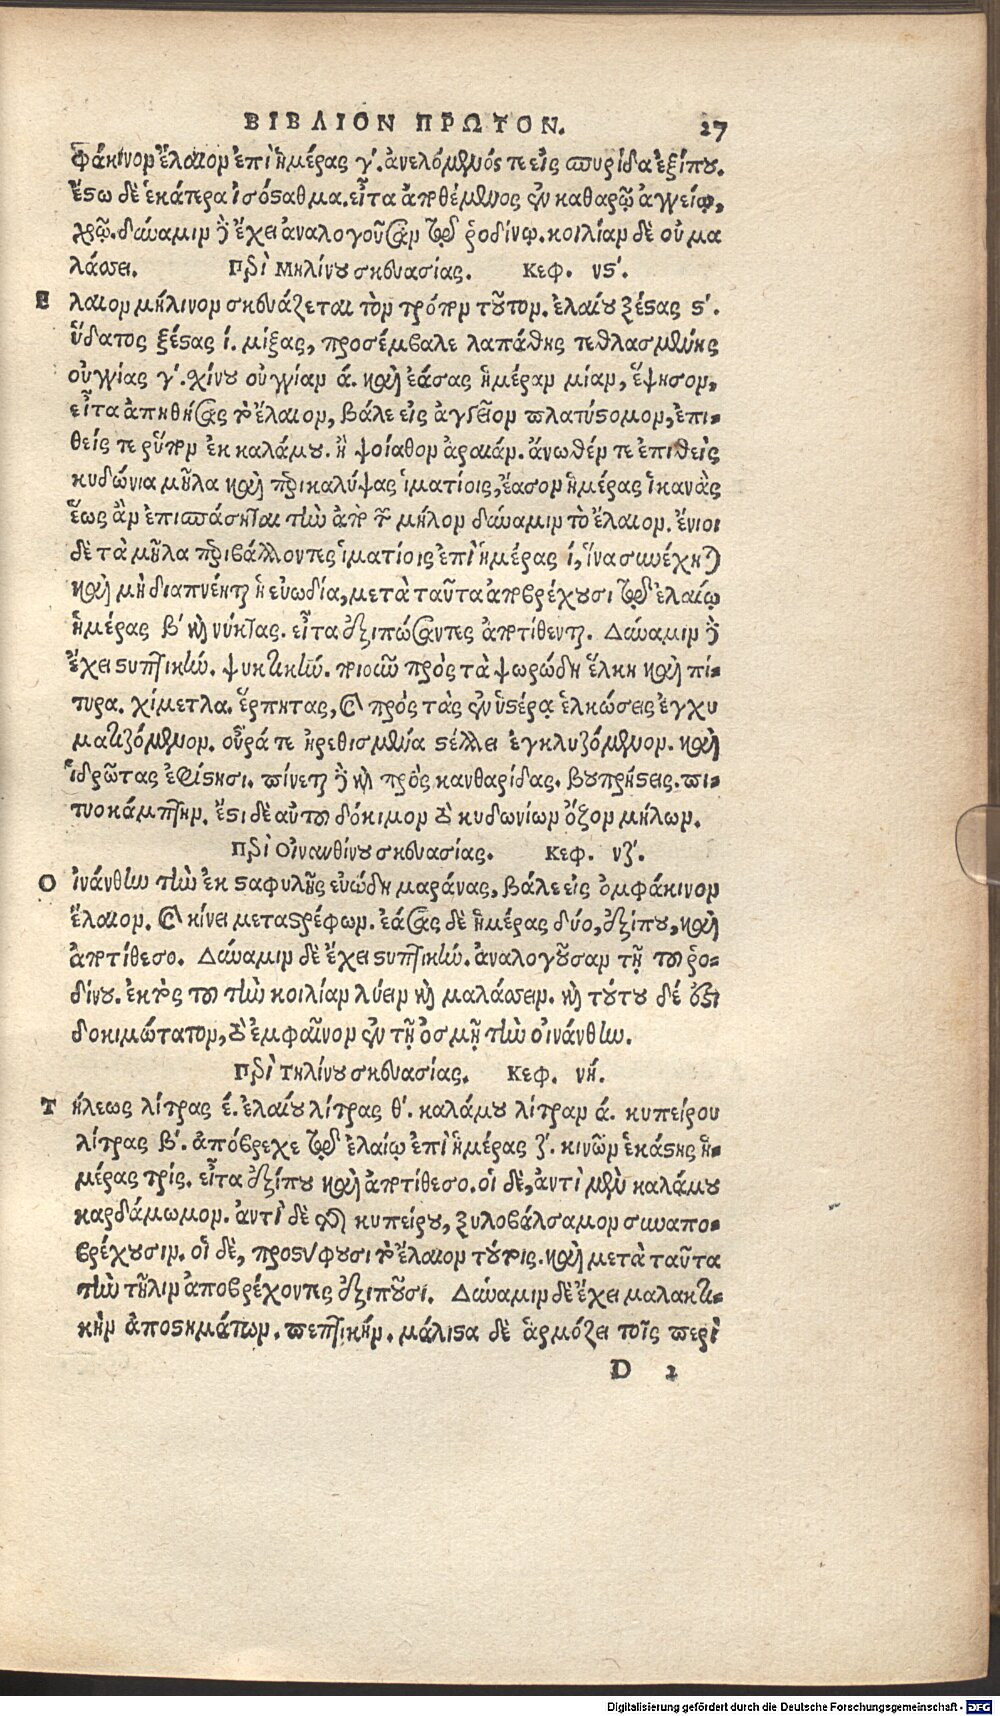 ΒΙΒΛΙΟΝ ΠΡΩΤΟΝ. 27
φάκινον ἔλαιον ἐπὶ ἡμέρας γ´. ἀνελόμενός τε εἰς σπυρίδα ἐξίπου.
ἔστω δὲ ἑκάτερα ἰσόσταθμα. εἶτα ἀποθέμενος ἐν καθαρῷ ἀγγείῳ,
χρῶ. δύναμιν δὲ ἔχει ἀναλογοῦσαν τῷ ῥοδίνῳ. κοιλίαν δὲ οὐ μα
λάσσει. Περὶ Μηλίνου σκευασίας. Κεφ. νϛ´.
Ελαιον μήλινον σκευάζεται τὸν τρόπον τοῦτον. ἐλαίου ξέστας ϛ´.
ὕδατος ξέστας ί. μίξας, προσέμβαλε σπάθης τεθλασμένης
οὐγγίας γ´. χίνου οὐγγίαν ά. καὶ ἐάσας ἡμέραν μίαν, ἕψησον,
εἶτα ἀπηθήσας τὸ ἔλαιον, βάλε εἰς ἀγγεῖον πλατύστομον, ἐπι-
θείς τε ῥῖπον ἐκ καλάμου. ἢ ψοίαθον ἀραιάν. ἄνωθέν τε ἐπιθεὶς
κυδώνια μῆλα καὶ περικαλύψας ἱματίοις, ἔασον ἡμέρας ἱκανὰς
ἕως ἂν ἐπισπάσηται τὴν ἀπὸ τῶν μήλον δύναμιν τὸ ἔλαιον. ἔνιοι
δὲ τὰ μῆλα περιβάλλοντες ἱματίοις ἐπὶ ἡμέρας ί, ἵνα συνέχηται
καὶ μὴ διαπνέηται ἡ εὐωδία, μετὰ ταῦτα ἀποβρέχουσι τῷ ἐλαίῳ
ἡμέρας β´ καὶ νύκτας. εἶτα ἐξιπώσαντες ἀποτίθενται. Δύναμιν δὲ
ἔχει στυπτικήν. ψυκτικήν. ποιοῦν πρὸς τὰ ψωρώδη ἕλκη καὶ πί-
τυρα. χίμετλα. ἕρπητας, καὶ πρὸς τὰς ἐν ὑστέρᾳ ἑλκώσεις ἐγχυ
ματιζόμενον. οὖρά τε ἠρεθισμένα στέλλει ἐγκλυζόμενον. καὶ
ἱδρῶτας ἐφίστησι. πίνεται δὲ καὶ πρὸς κανθαρίδας. βουπρήστεις. πι-
τυοκάμπτην. ἔστι δὲ αὐτοῦ δόκιμον τὸ κυδωνίων ὄζον μήλων.
Περὶ Οἰνανθίνου σκευασίας. Κεφ. νζ´.
Οἰνάνθην τὴν ἐκ σταφυλῆς εὐώδη μαράνας, βάλε εἰς ὀμφάκινον
ἔλαιον. καὶ κίνει μεταστρέφων. ἐάσας δὲ ἡμέρας δύο, ἐξίπου, καὶ
ἀποτίθεσο. Δύναμιν δὲ ἔχει στυπτικήν. ἀναλογοῦσαν τῇ τοῦ ῥο-
δίνου. ἐκτὸς τοῦ τὴν κοιλίαν λύειν καὶ μαλάσσειν. καὶ τούτου δέ ἐστι
δοκιμώτατον, τὸ ἐμφαῖνον ἐν τῇ ὀσμῇ τὴν οἰνάνθην.
Περὶ Τηλίνου σκευασίας. Κεφ. νή.
Τήλεως λίτρας έ. ἐλαίου λίτρας θ´. καλάμου λίτραν ά. κυπείρου
λίτρας β´. ἀπόβρεχε τῷ ἐλαίῳ ἐπὶ ἡμέρας ζ´. κινῶν ἑκάστης ἡ-
μέρας τρίς. εἶτα ἐξίπου καὶ ἀποτίθεσο. οἱ δὲ, ἀντὶ μὲν καλάμου
καρδάμωμον. ἀντὶ δὲ τοῦ κυπείρου, ξυλοβάλσαμον συναπο-
βρέχουσιν. οἱ δὲ, προστύφουσι τὸ ἔλαιον τούτοις. καὶ μετὰ ταῦτα
τὴν τῆλιν ἀποβρέχοντες ἐξιποῦσι. Δύναμιν δὲ ἔχει μαλακτι-
κὴν ἀποστημάτων. πεπτικήν. μάλιστα δὲ ἁρμόζει τοῖς περὶ
D 2
Digitalisierung gefördert durch die Deutsche Forschungsgemeinschaft - DFG